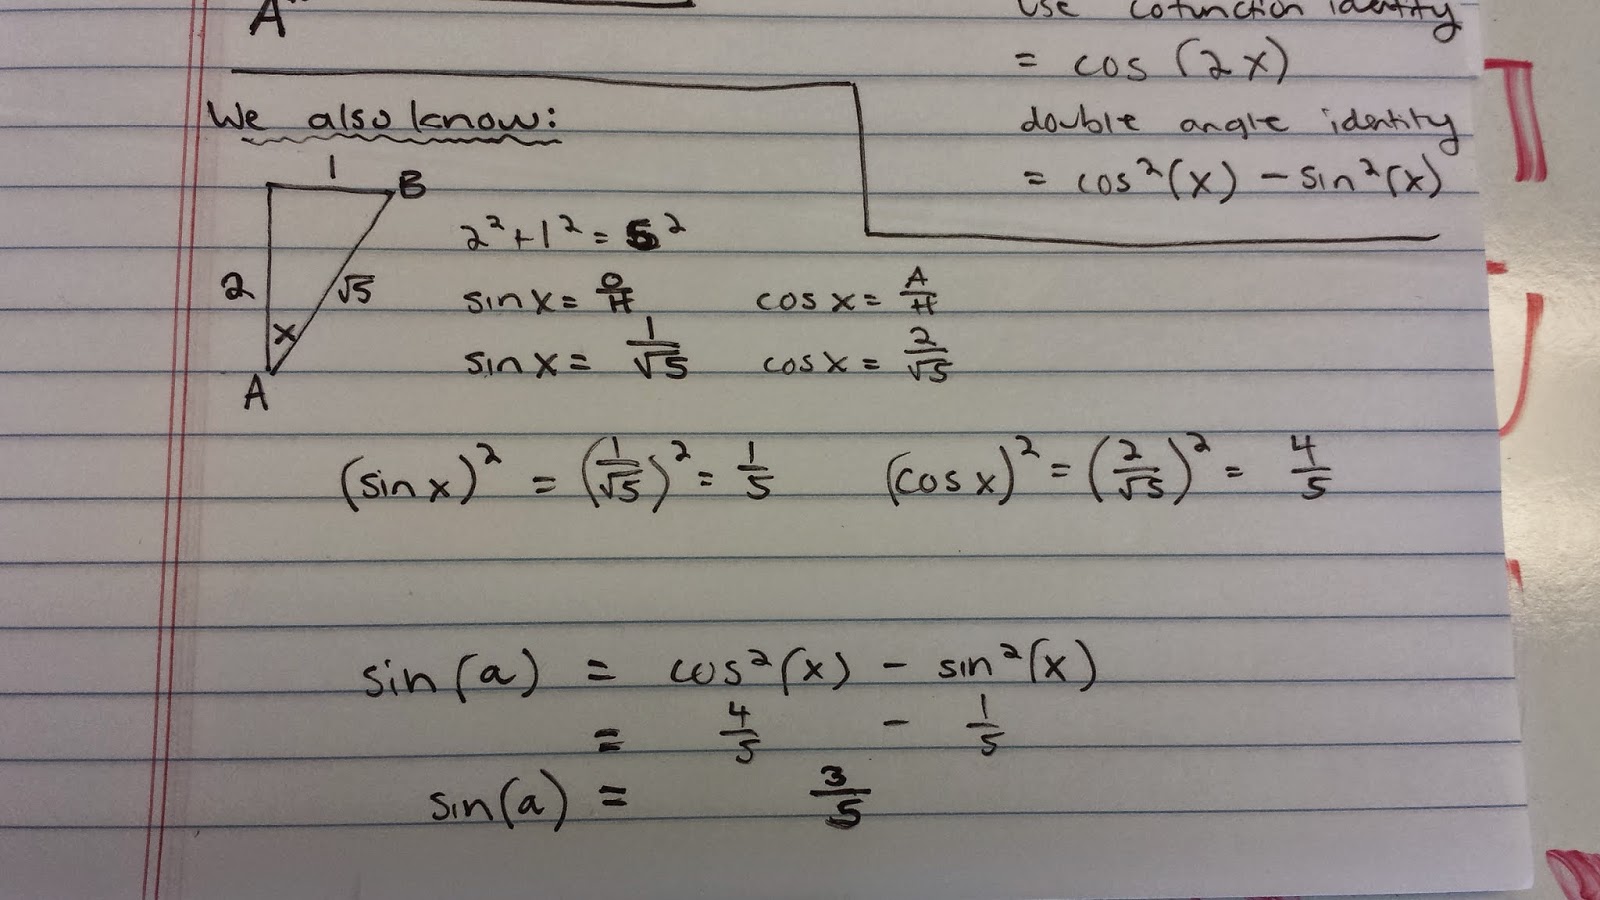 A
use cofunction identity
= cos (2x)
double angle identity
= cos²(x) - sin²(x)
We also know:
1
B
2
√5
x
A
2² + 1² = 5²
sin x = O/H cos x = A/H
sin x = 1/√5 cos x = 2/√5
(sin x)² = (1/√5)² = 1/5 (cos x)² = (2/√5)² = 4/5
sin(a) = cos²(x) - sin²(x)
= 4/5 - 1/5
sin(a) = 3/5